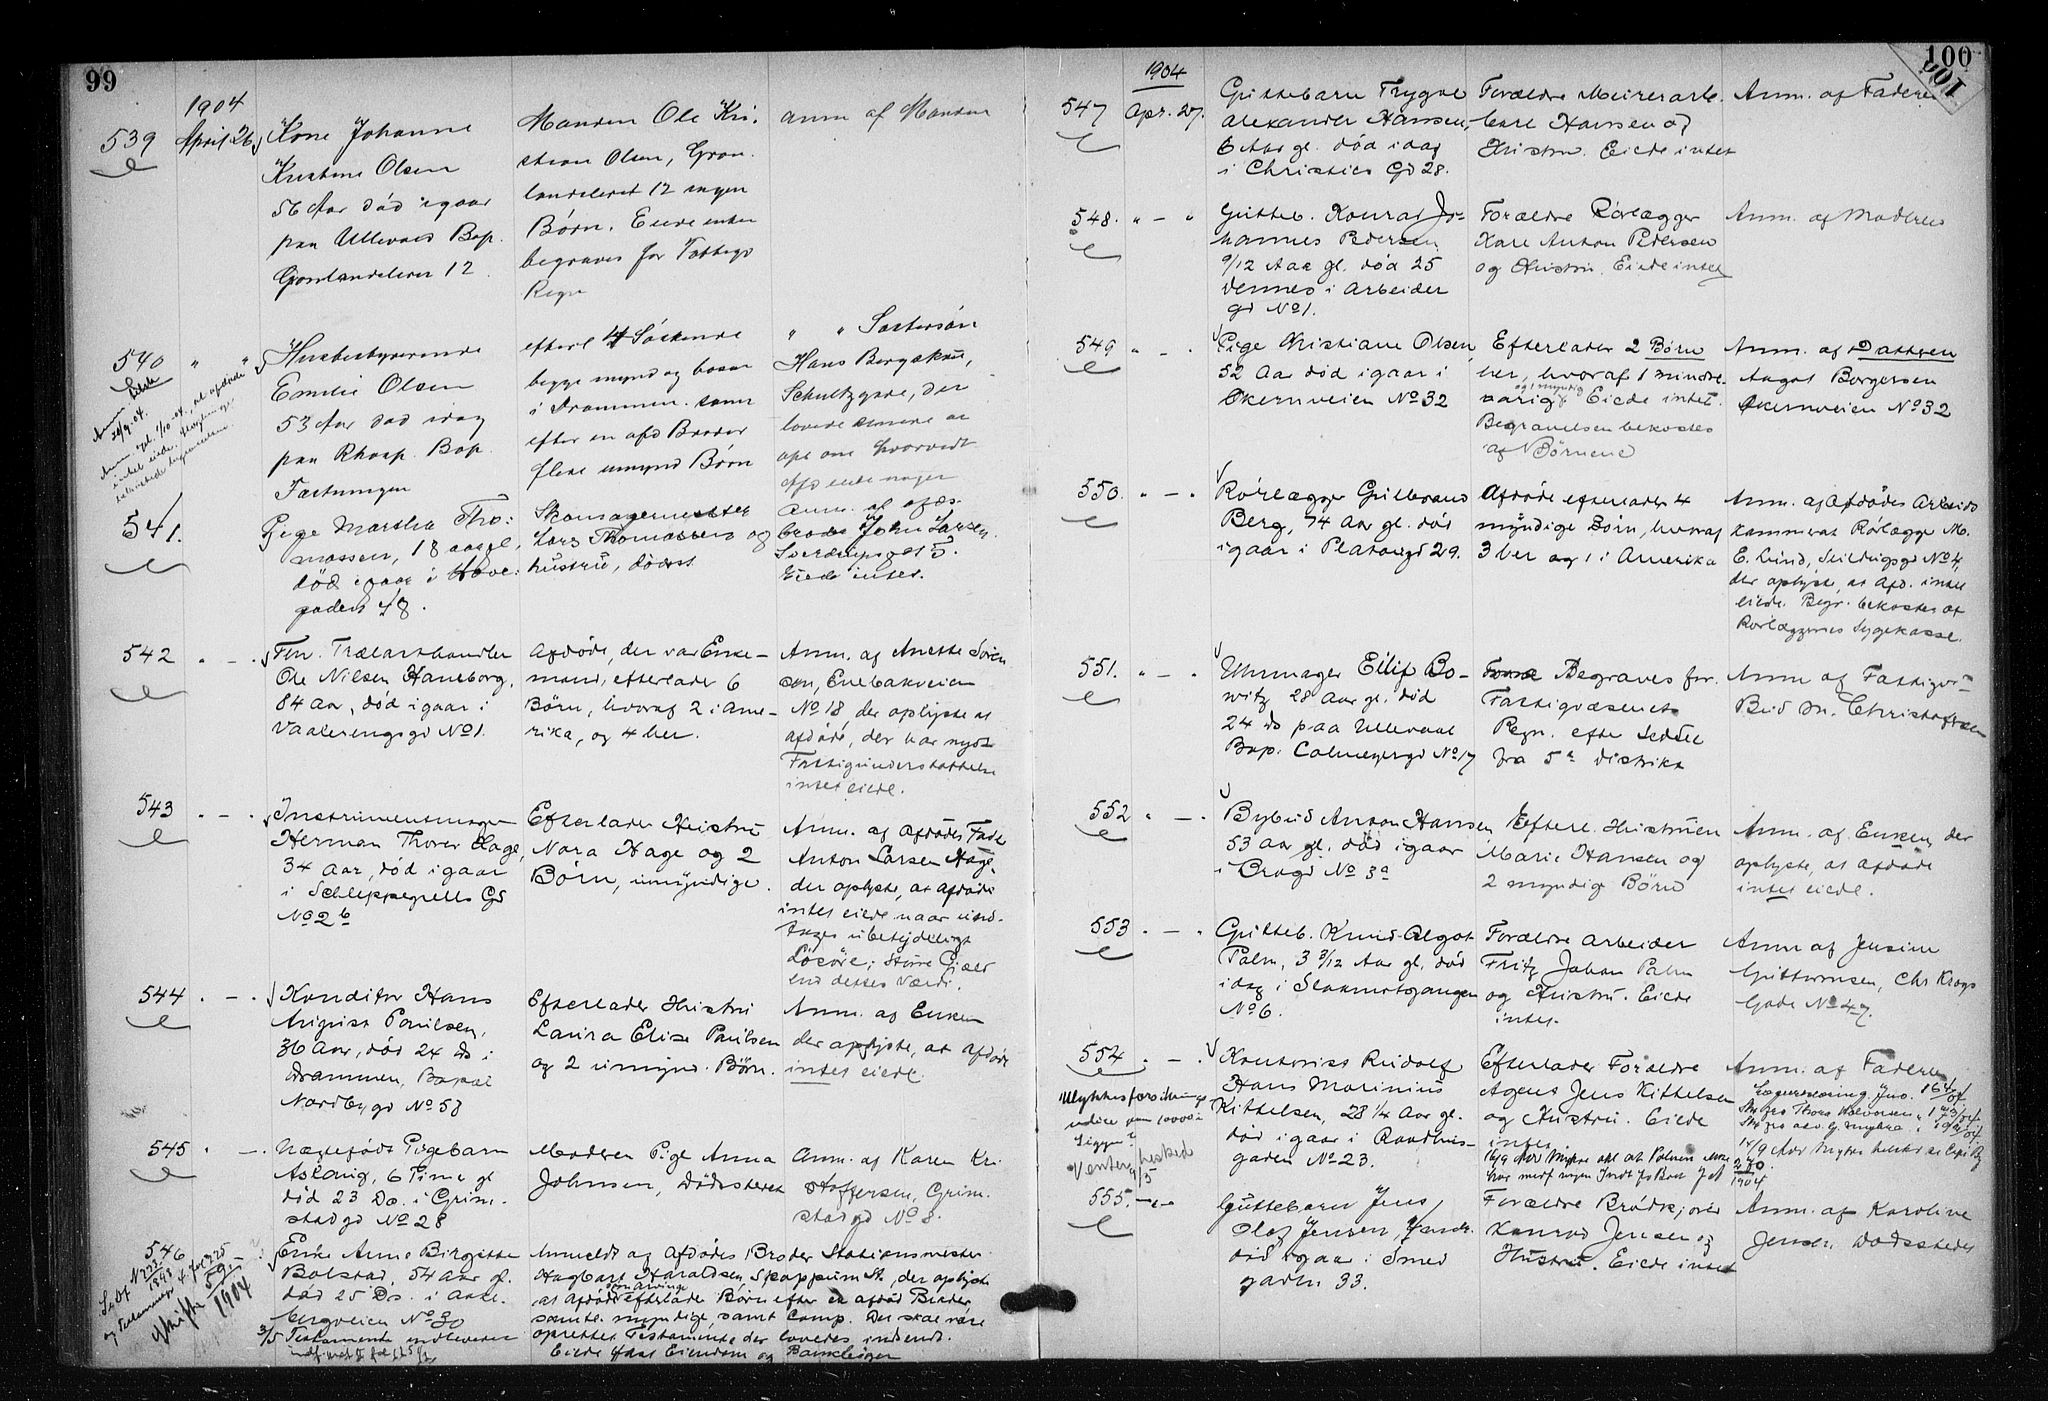 99
1904
539
April 26
Kone Johanne
Kristine Olsen
56 Aar død igaar
paa Ullevaal Bap.
Grønlandsleret 12
Manden Ole Kri-
stian Olsen, Grøn-
landsleret 12 ingen
Børn. Eiede intet
begraves for Fattigv
Regn
anm af Manden
540
" "
Husbestyrerinde
Emilie Olsen
53 Aar død idag
paa Rhosp. Bop.
Fæstningen
efterl 4 Søskende
begge mynd og bosat
i Drammen samt
efter en afd Broder
flere umynd Børn
" " Søstersøn
Hans Bergskau,
Schultzgade, der
lovede senere at
opl om hvorvidt
Afd eiede noget
541.
Pige Martha Tho-
massen, 18 aar gl.
død igaar i
gaden 48.
Skomagermester
Lars Thomassen og
hustru, dødsst
Anm. af afdøs
broder John Larsen
Sverdrupsgt 5.
Eiede intet.
542
. - .
Fhv. Trælasthandler
Ole Nilsen Haneborg,
84 Aar, død igaar i
Vaalerengsgd No 1.
Afdøde, der var Enke-
mand, efterlader 6
Børn, hvoraf 2 i Ame-
rika, og 4 her.
Anm. af Anette Søren
sen, Enebakveien
No 18, der oplyste at
afdøde, der har nydt
Fattigunderstøttelse
intet eiede.
543
. - .
Instrumentmager
Herman Thorer Hage,
34 Aar, død igaar
i Schleppegrells Gd
No 2 b
Efterlader Hustru
Nora Hage og 2
Børn, umyndige.
Anm. af Afdødes Fader
Anton Larsen Hage,
der oplyste, at Afdøde
intet eiede naar und-
tages ubetydeligt
Løsøre; større Gjæld
end dettes Værdi.
544
. - .
Konditor Hans
August Paulsen,
36 Aar, død 24 ds i
Drammen, Bopæl
Nordbygd No 58
Efterlader Hustru
Laura Elise Paulsen
og 2 umynd. Børn.
Anm. af Enken
der oplyste, at Afdøde
intet eiede.
545
. - .
Uægtefødt Pigebarn
Aslaug, 6 Time gl
død 23 Ds. i Grim-
stadgd No 28
Moderen Pige Anna
Johnsen, Dødsstedet
Anm. af Karen Kri
stoffersen, Grim-
stadgd No 8.
546
1904
Enke Anne Birgitte
Bolstad, 54 Aar gl.
død 25 Ds. i Aake-
bergveien No 30
3/5 Testamente indleveret
Anmeldt af Afdødes Broder Stationsmester
Hagbart Haraldsen Skoppum St., der oplyste
at Afdøde som Arvinge efterlader Børn efter en afdød Broder,
samtl. myndige, samt Comp. Der skal være
oprettet Testamente der lovedes indsendt.
Eiede fast Eiendom og Bankbøger
100
1904
547
Apr. 27.
Guttebarn Trygve
Alexander Hansen,
6 Aar gl. død idag
i Christies Gd 28.
Forældre Meierarb.
Carl Hansen og
Hustru. Eiede intet
Anm. af Faderen
548.
" - "
Gutteb. Konrad Jo-
hannes Pedersen
9/12 Aar gl. død 25
dennes i Arbeider
gd No 1.
Forældre Rørlægger
Karl Anton Pedersen
og Hustru. Eiede intet
Anm. af Moderen
549
" - .
Pige Kristiane Olsen
52 Aar død igaar i
Økernveien No 32
Efterlader 2 Børn
her, hvoraf 1 mindre-
aarig og 1 myndig Eiede intet.
Begravelsen bekostes
af Børnene
Anm. af Datteren
Aagot Borgersen
Økernveien No 32
550.
" - .
Rørlægger Gulbrand
Berg, 74 Aar gl. død
igaar i Platousgd 29.
Afdøde efterlader 4
myndige Børn, hvoraf
3 her og 1 i Amerika
Anm. af Afdødes Arbeids
kammerat Rørlægger M.
E. Lund, Seilduggd No 4,
der oplyste, at Afd. intet
eiede. Begr. bekostes af
Rørlæggernes Sygekasse.
551.
" - .
Uhrmager Eilif Bo-
witz 28 Aar gl. død
24 ds paa Ullevaal
Bop. Calmeyersgd No 17
Begraves for
Fattigvæsenets
Regn. efter Seddel
fra 5te distrikt
Anm af Fattigv's
Bud M. Christoffersen
552
" - .
Bybud Anton Hansen
53 Aar gl. død igaar
i Crogd No 3a
Efterl. Hustruen
Marie Hansen og
2 myndige Børn
Anm. af Enken, der
oplyste, at afdøde
intet eiede.
553
. - .
Gutteb. Knud Algot
Palm, 3 3/12 Aar gl. død
idag i Stokmotgangen
No 6.
Forældre Arbeider
Fritz Johan Palm
og Hustru. Eiede
intet.
Anm af Jensine
Guttormsen, Chr. Krogs
Gade No 47.
554
. - .
Ulykkesforsikring
Venter besked
9/5
Kontorist Rudolf
Hans Marinius
Kittelsen, 28 1/4 Aar gl.
død igaar i Raadhus-
gaden No 23.
Efterlader Forældre
Agent Jens Kittelsen
og Hustru. Eiede
intet
Anm. af Faderen
555.
- " -
Guttebarn Jens
Olaf Jensen,
død igaar i Smed
gaden 33.
Forældre Brødkjører
Konrad Jensen og
Hustru. Eiede intet
Anm. af Karoline
Jensen, Dødsstedet